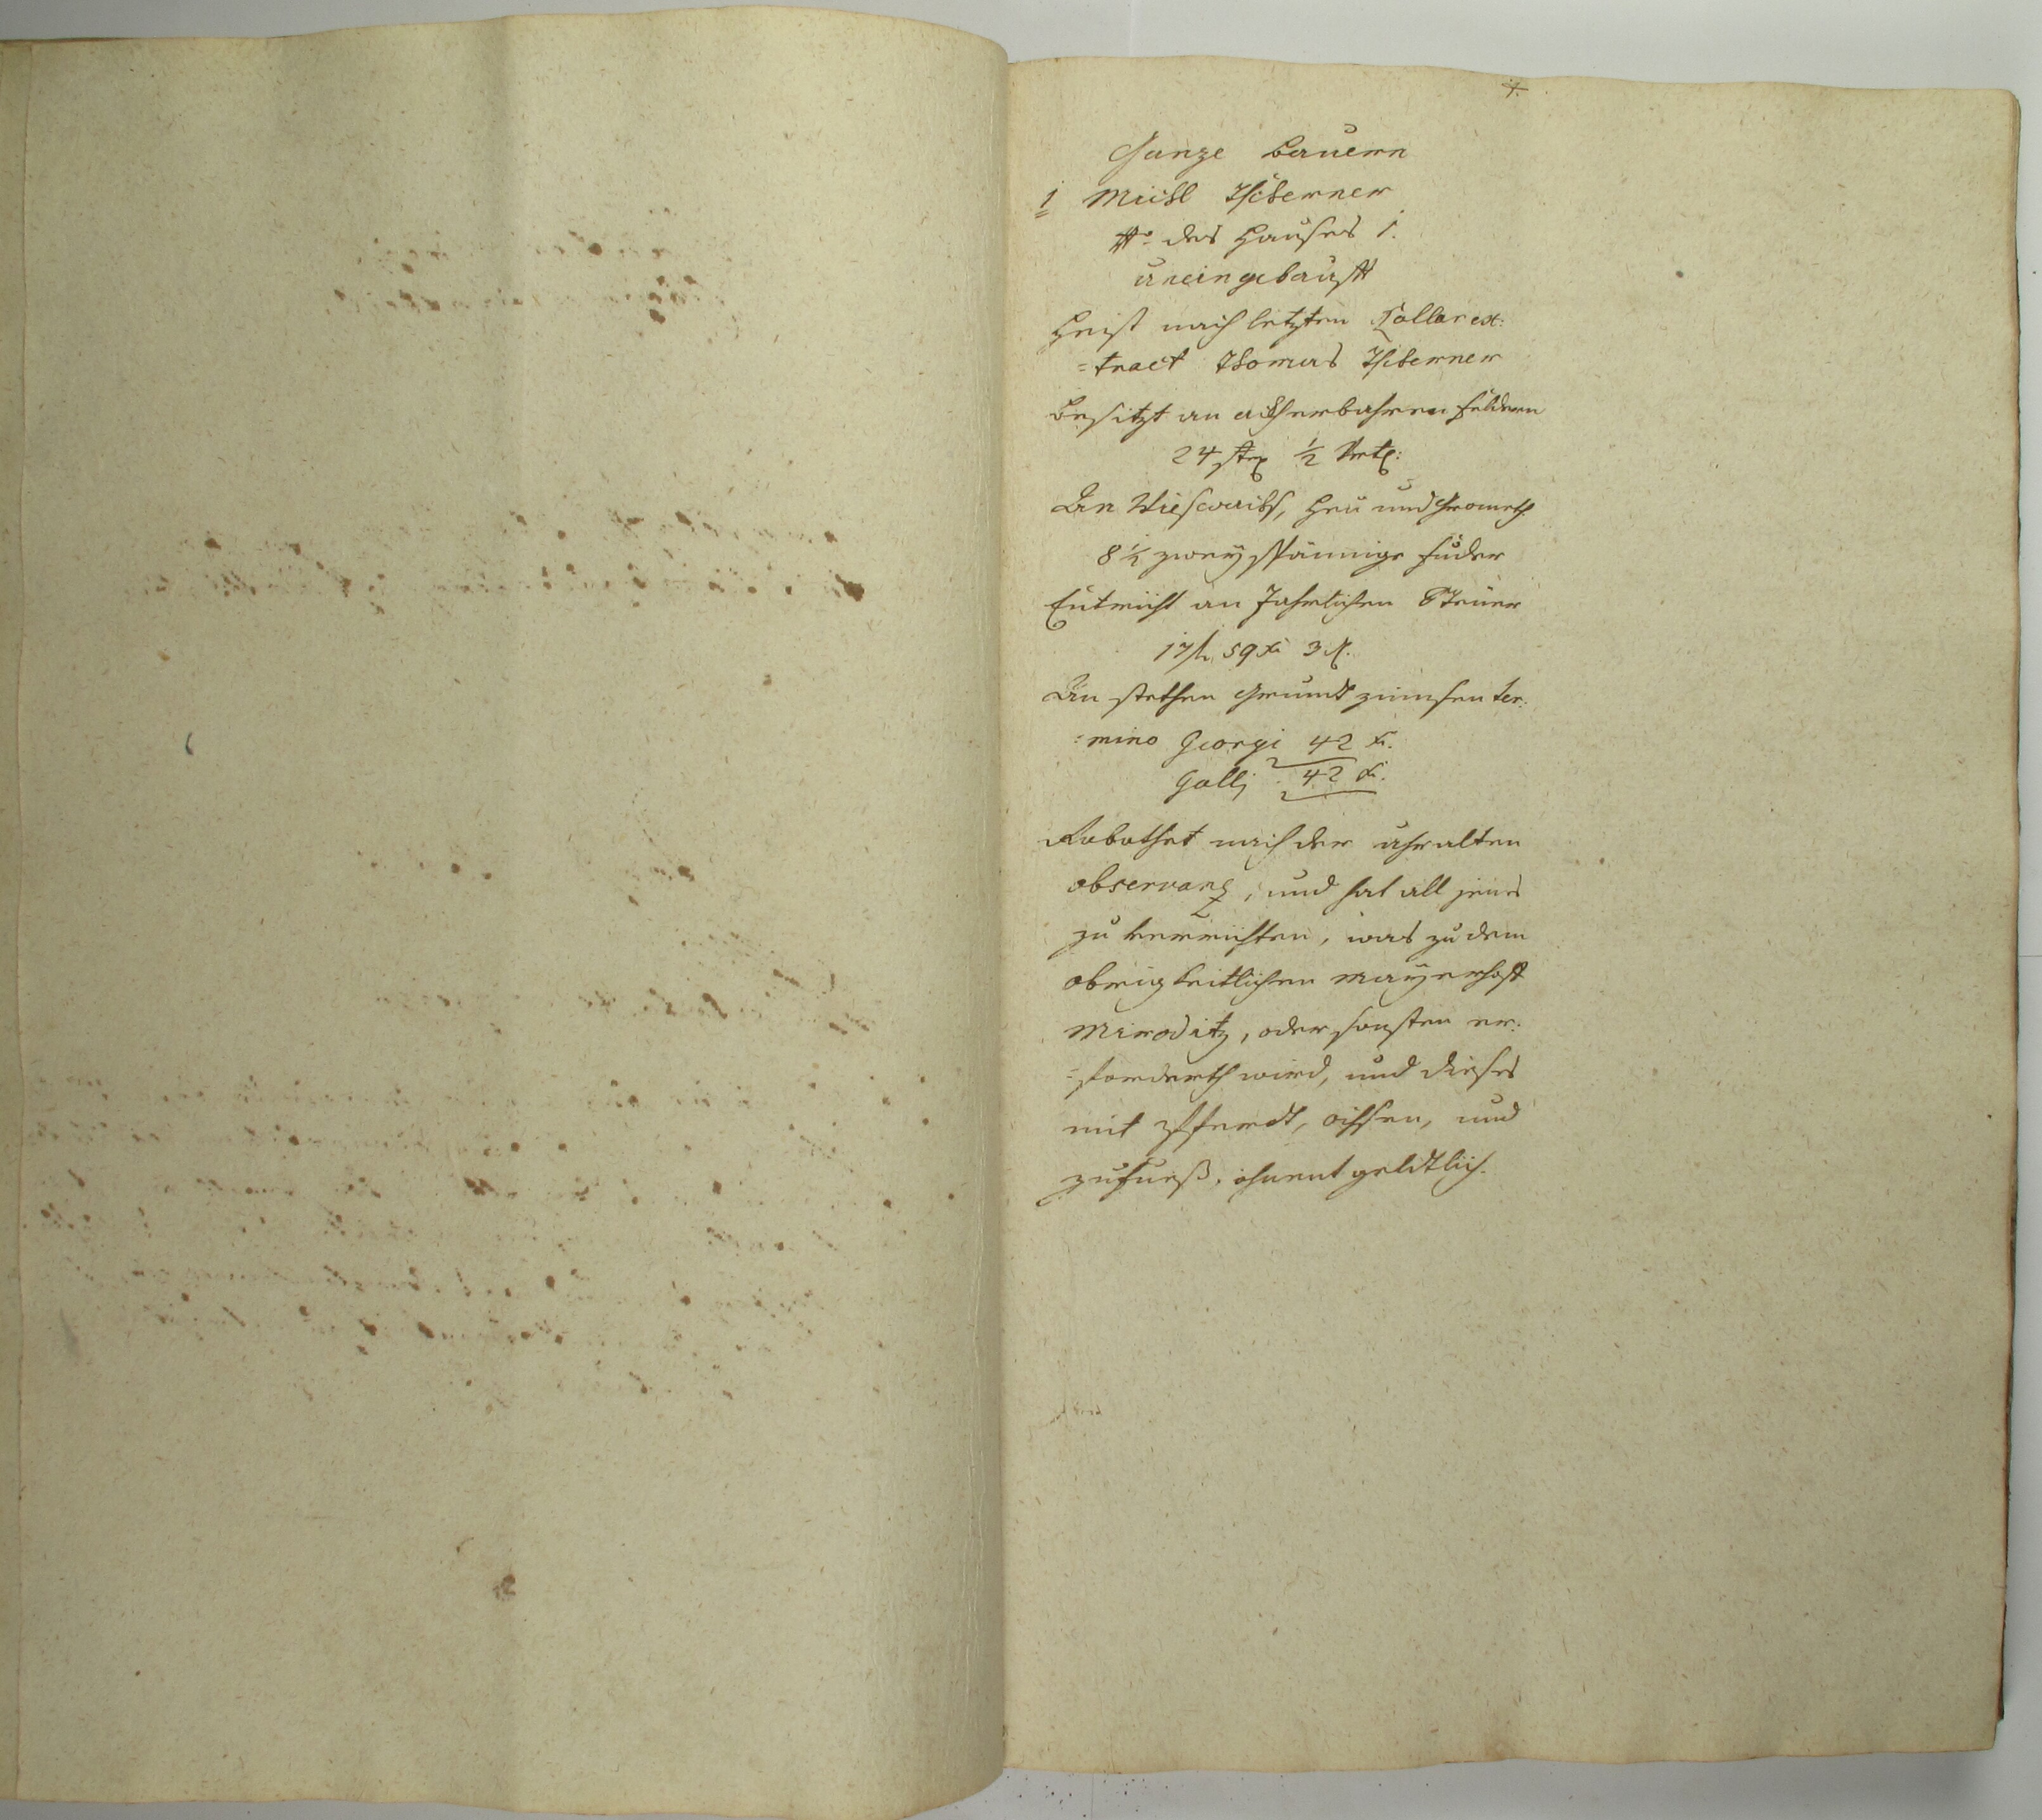 Ganze Bauern
1 Michl Tscherner
No. des Hauses 1.
uneingekaufft
Heist nach letzten Rollar ex:
=tract Thomas Tscherner
Besitzt an ackherbahren Feldern
24 Str 1/2 Vrtl:
An Wiesewachs, Heu und Grometh
8 1/2 zweyspännige Fuder
Entricht an Jahrlichen Steuer
17 f 59 Xr 3 d.
An stethen Grundt zinnsen ter:
=mino Georgi 42 Xr.
Galli 42 Xr.
Robothet nach der uhralten
observanz, und hat all jenes
zu verrichten, was zu dem
obrigkeitlichen Mayerhoff
Miroditz, oder sonsten er:
=forderth wird, und dieses
mit Pferdt, Ochsen, und
zufueß, ohnentgeldtlich.